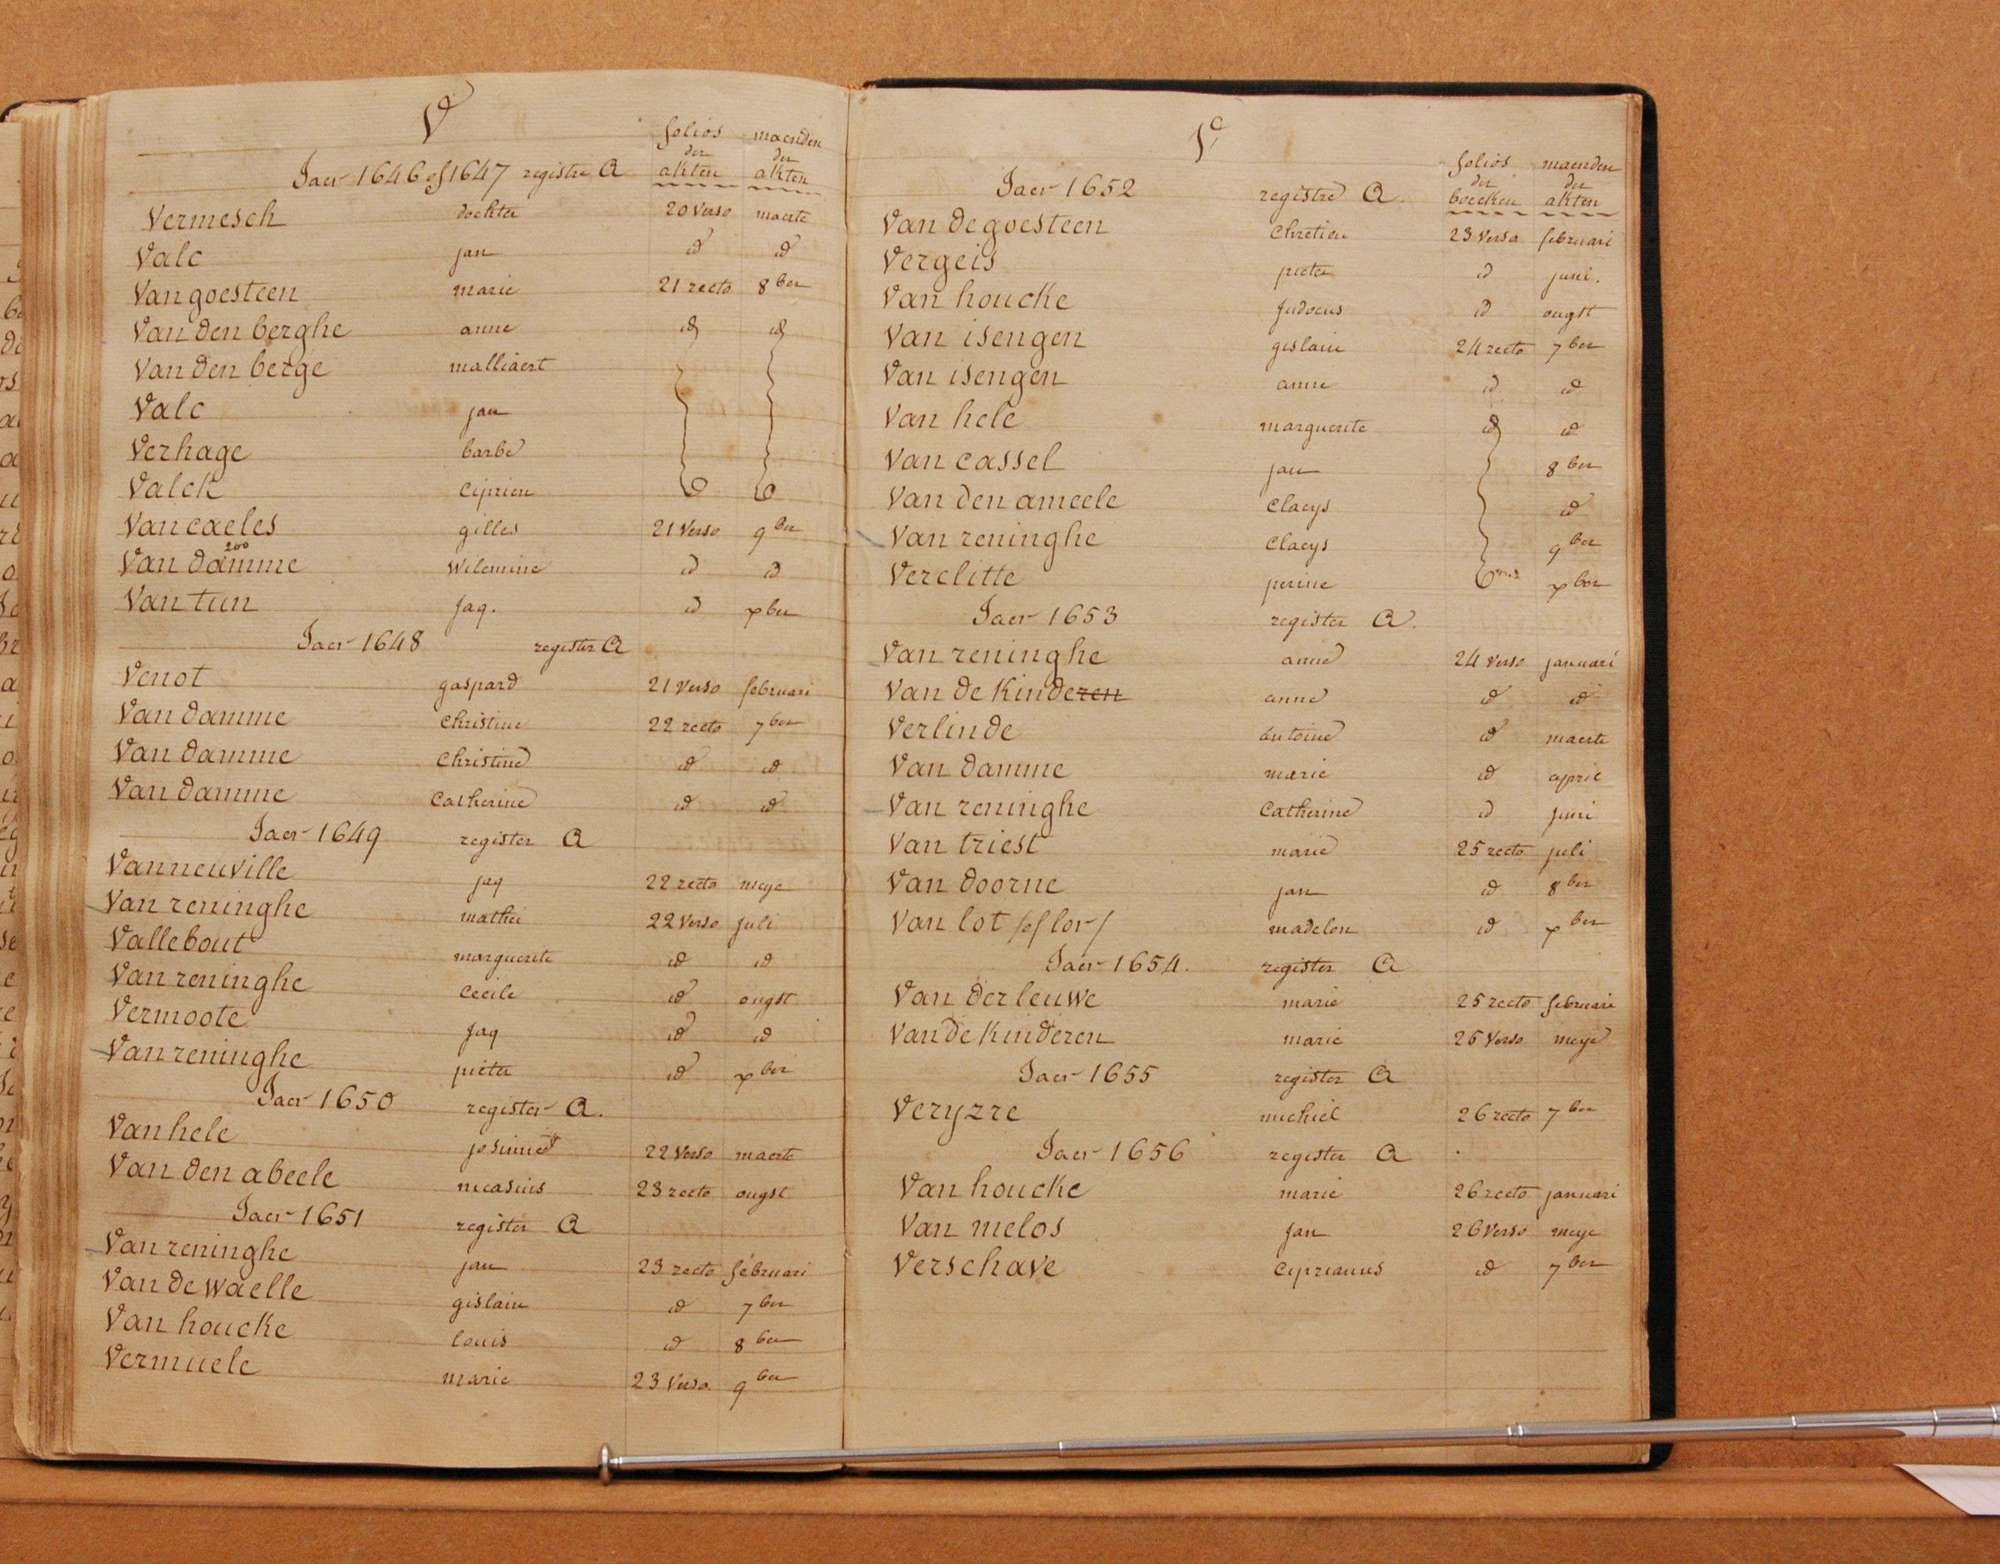 V
folios maenden
der der
Jaer 1646 of 1647 registre A akten akten
Vermesch dochter 20 verso maerte
Valc jan id id
Van goesteen marie 21 recto 8ber
Van den berghe anne id id
Van den berge malliaert
Valc jan
Verhage barbe
Valck Ciprien
Van caeles gilles 21 verso 9ber
200
Van damme Wilemine id id
Van tun Jaq. id xber
Jaer 1648 register A
Venot gaspard 21 verso februari
Van damme Christine 22 recto 7ber
Van damme Christine id id
Van damme Catherine id id
Jaer 1649 register A
Van neuville jaq 22 recto meye
Van reninghe mathei 22 verso juli
Vallebout marguerite id id
Van reninghe Cecile id ougst
Vermoote Jaq id id
Van reninghe pieter id xber
Jaer 1650 register A.
Van hele josinne 22 verso maerte
Van den abeele nicasius 23 recto ougst
Jaer 1651 register A
Van reninghe jan 23 recto februari
Van de waelle gislain id 7ber
Van houcke louis id 8ber
Vermuele marie 23 verso 9ber
V
folios maenden
der der
Jaer 1652 registre A. boecken akten
Van de goesteen Chretien 23 verso februari
Vergeis pieter id juni.
Van houcke Judocus id ougst
Van isengen gislain 24 recto 7ber
Van isengen anne id id
Van hele marguerite id id
Van cassel jan 8ber
Van den ameele Claeys id
Van reninghe Claeys 9ber
Verclitte perine xber
Jaer 1653 register A.
Van reninghe anne 24 verso januari
Van de Kinderen anne id id
Verlinde antoine id maerte
Van damme marie id april
Van reninghe Catherine id juni
Van triest marie 25 recto juli
Van doorne jan id 8ber
Van lot /of lor/ madelon id xber
Jaer 1654. register A
Van der leuwe marie 25 recto februari
Van de Kinderen marie 25 verso meye
Jaer 1655 register A
Veryzre michiel 26 recto 7ber
Jaer 1656 register A
Van houcke marie 26 recto januari
Van melos Jan 26 verso meye
Verschave Ciprianus id 7ber